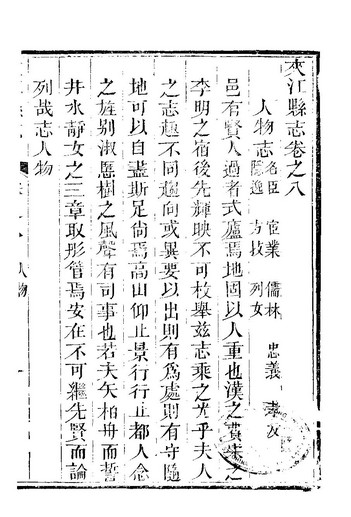 夾江縣志卷之八
人物志 名臣 宦業 儒林 忠義 孝友
隱逸 方技 列女
邑有賢人過者式廬焉地固以人重也漢之費朱之
李明之宿後先輝映不可枚舉茲志乘之光乎夫人
之志趣不同趨向或異要以出則有為處則有守隨
地可以自盡斯足尚焉高山仰止景行行止都人念
之旌別淑慝樹之風聲有司事也若夫矢柏舟而誓
井水靜女之三章取彤管焉安在不可繼先賢而論
列哉志人物
人物